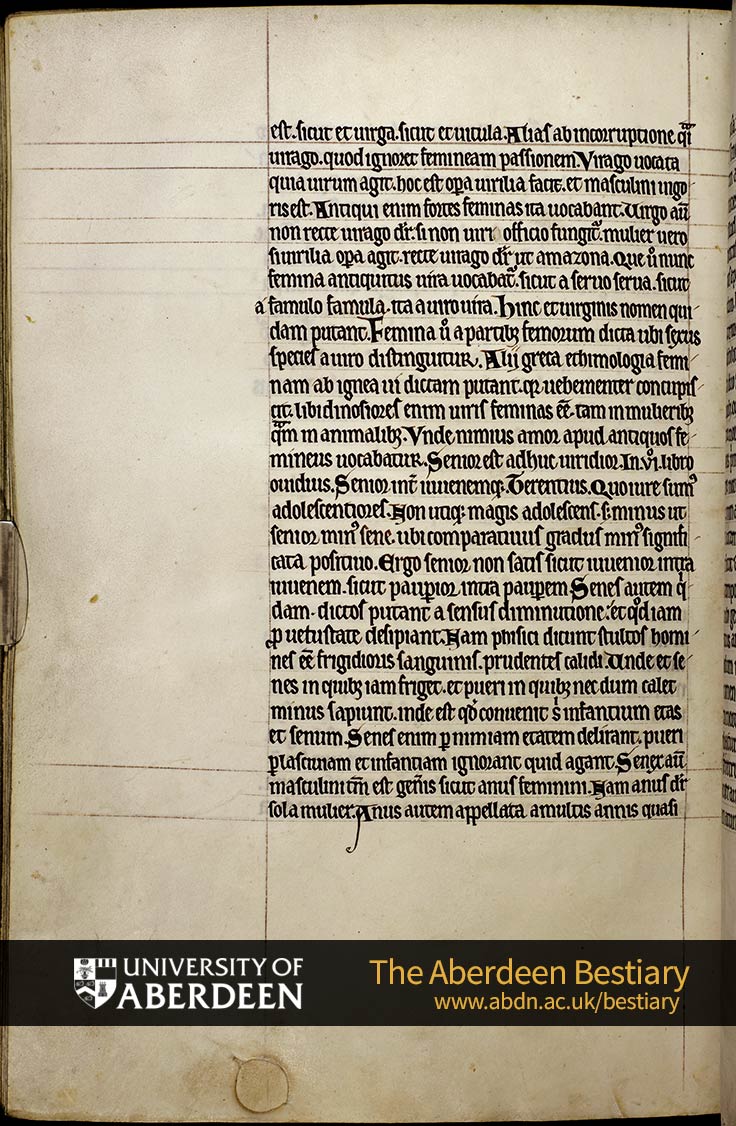 est. sicut et uirga. sicut et uitula. Alias ab incorruptione. q̅ı
uirago. quod ignoret femineam passionem. Virago uocata
quia uirum agit. hoc est op̅a uirilia facit. et masculini uigo
ris est. Antiqui enim fortes feminas ita uocabant. Uirgo au̅
non recte uirago dr̅. si non uiri officio fungit᷑. mulier uero
si uirilia op̅a agit. recte uirago dr̅ ut amazona. Que u̅ nunc
femina antiquitus uira uocabat᷑. sicut a seruo serua. sicut
a famulo famula. ita a uiro uira. Hinc et uirginis nomen qui
dam putant. Femina u̅ a partibꝫ femorum dicta ubi sexus
species a uiro distinguitur. Alij greca ethimologia femi
nam ab ignea ui dictam putant. qꝛ uehementer concupis
cit. libidinosiores enim uiris feminas ee̅. tam in mulieribꝫ
q̅m in animalibꝫ. Vnde nimius amor apud antiquos fe
mineus uocabatur. Senior est adhuc uiridior. In .vi. libro
ouidius. Senior int̅ iuuenemqꝫ. Terentius. Quo iure sum᷒
adolescentiores. Non utiqꝫ magis adolescens. s; minus ut
senior min᷒ sene. ubi comparatiuus gradus min᷒ signifi
cata positiuo. Ergo senior non satis sicut iuuenior intra
iuuenem. sicut pauꝑior intra pauꝑem Senes autem q̇
dam dictos putant a sensus diminutione. et qd̓ iam
ꝓ uetustate desipiant. Nam phisici dicunt stultos homi
nes ee̅ frigidioris sanguinis. prudentes calidi. Unde et se
nes in quibꝫ iam friget. et pueri in quibꝫ nec dum calet
minus sapiunt. inde est qd̓ conuenit s̓ infantium etas
et senum. Senes enim ꝑ nimiam etatem delirant. pueri
ꝑ lasciuiam et infantiam ignorant quid agant. Senex au̅
masculini tm̅ est gen̅is sicut anus feminini. Nam anus dr̅
sola mulier. Anus autem appellata a multis annis quasi
UNIVERSITY OF
ABERDEEN
The Aberdeen Bestiary
www.abdn.ac.uk/bestiary